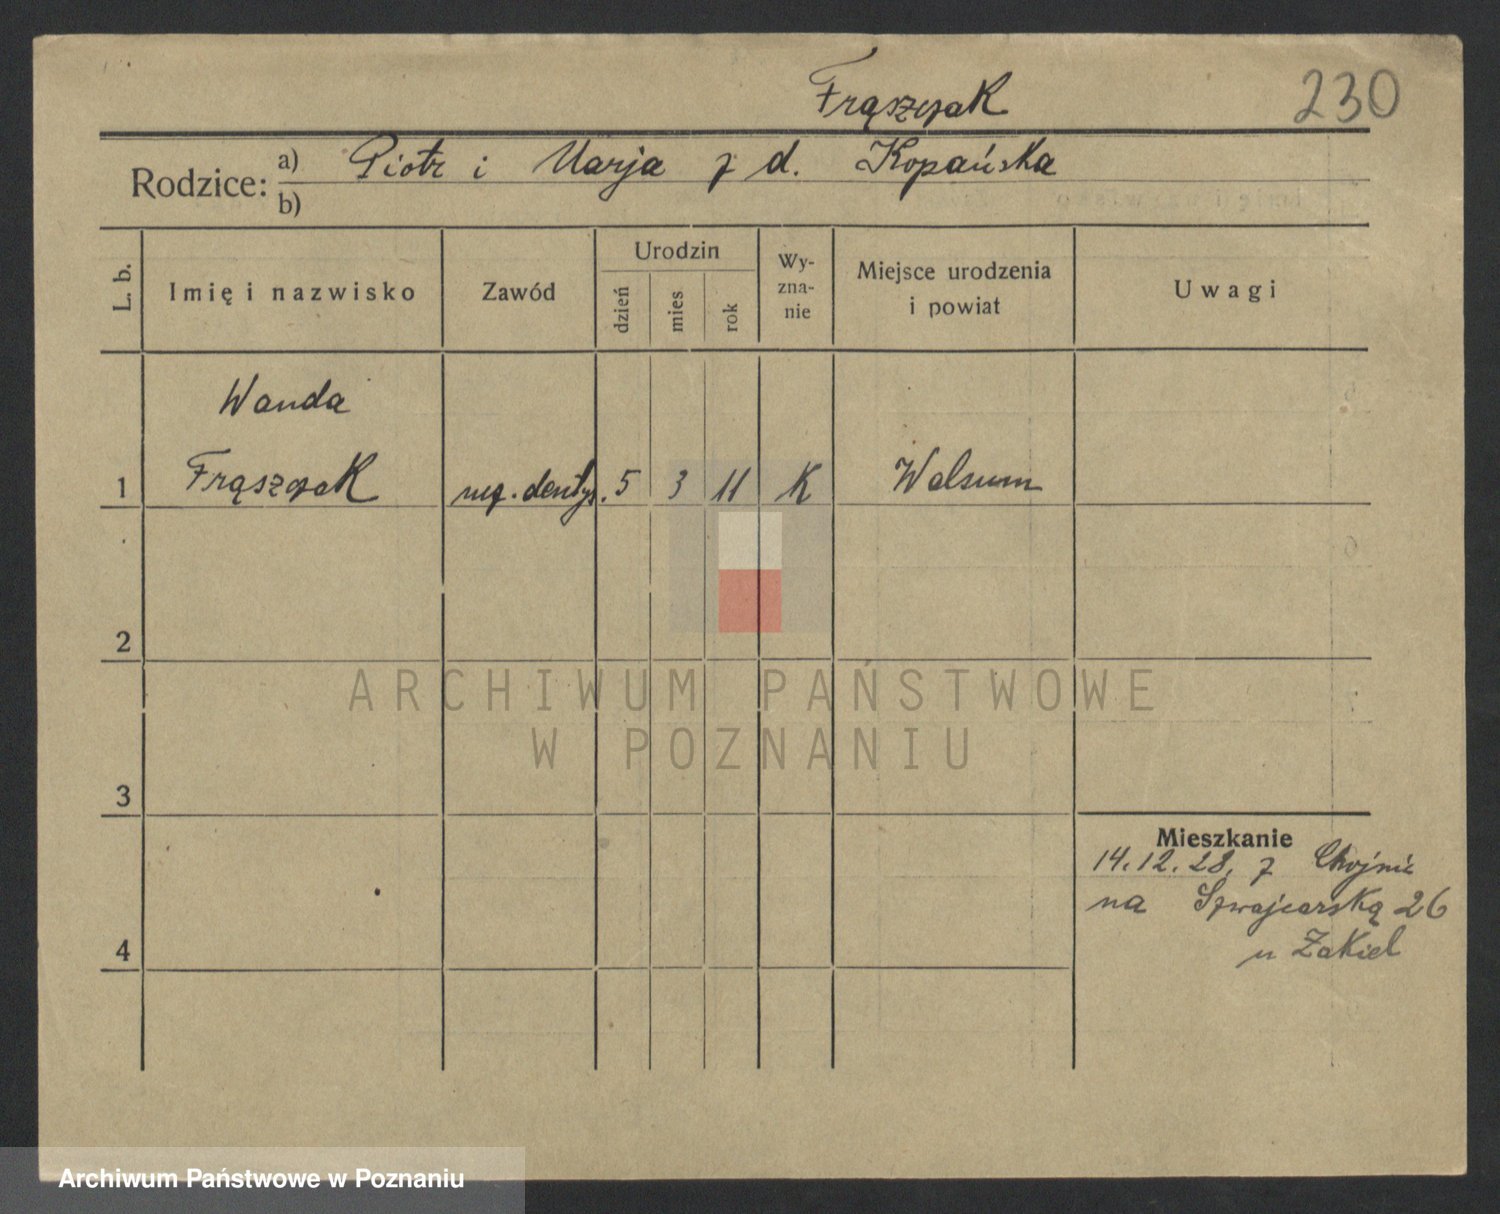 Frąszczak
230
Rodzice: a) Piotr i Marja z d. Kopańska
b)
L. b.
Imię i nazwisko
Zawód
Urodzin
dzień
mies
rok
Wy-
zna-
nie
Miejsce urodzenia
i powiat
Uwagi
Wanda
1 Frąszczak ucz. dentys. 5 3 11 K Walsum
2
ARCHIWUM PAŃSTWOWE
W POZNANIU
3
Mieszkanie
14.12.28. z Chojnic
na Szwajcarską 26
u Zakiel
4
Archiwum Państwowe w Poznaniu